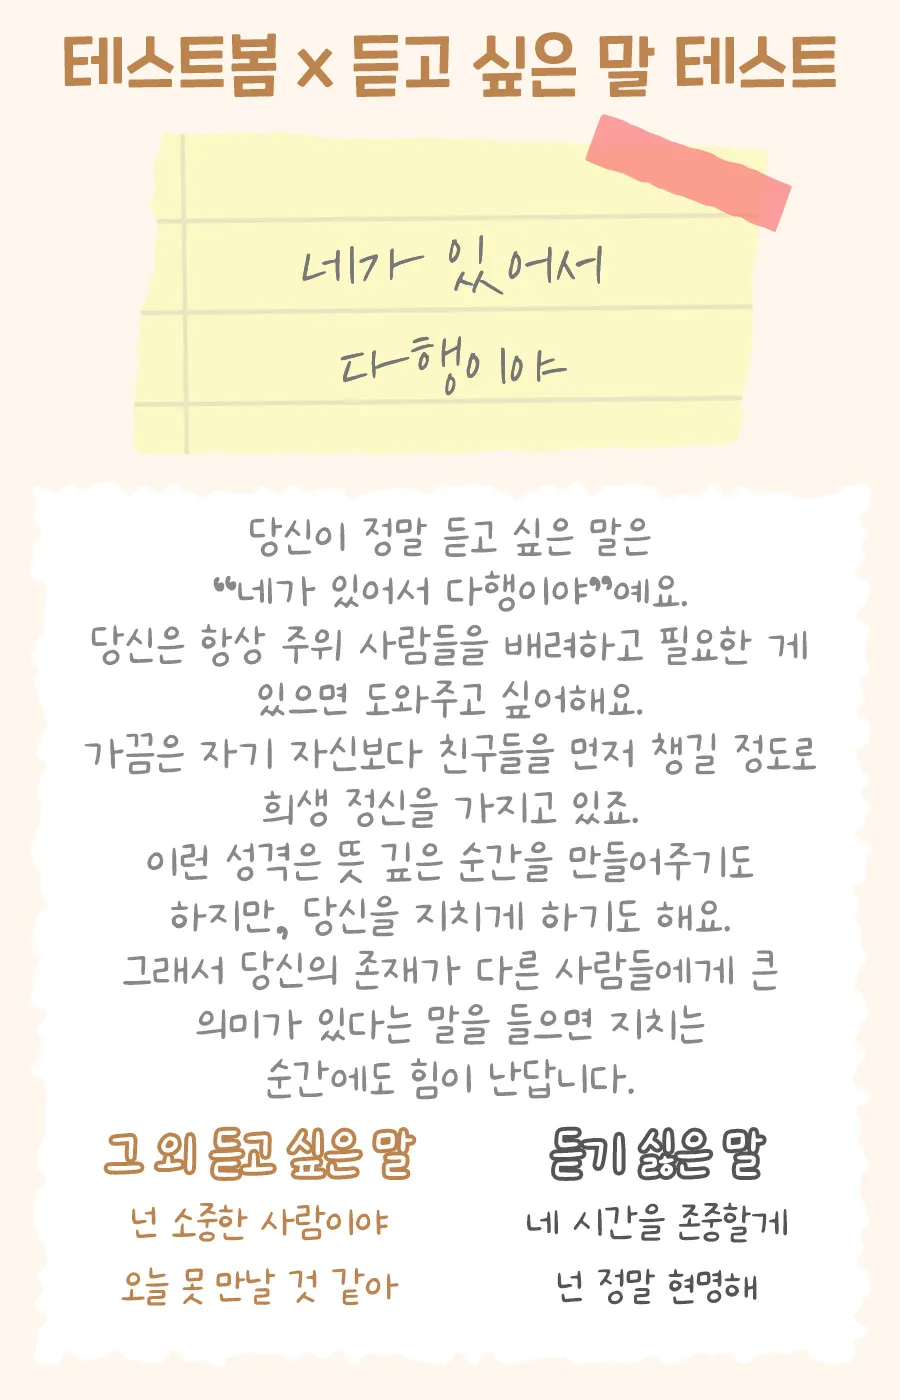 테스트봄 x 듣고 싶은 말 테스트
네가 있어서
다행이야
당신이 정말 듣고 싶은 말은
“네가 있어서 다행이야”예요.
당신은 항상 주위 사람들을 배려하고 필요한 게
있으면 도와주고 싶어해요.
가끔은 자기 자신보다 친구들을 먼저 챙길 정도로
희생 정신을 가지고 있죠.
이런 성격은 뜻 깊은 순간을 만들어주기도
하지만, 당신을 지치게 하기도 해요.
그래서 당신의 존재가 다른 사람들에게 큰
의미가 있다는 말을 들으면 지치는
순간에도 힘이 난답니다.
그 외 듣고 싶은 말
넌 소중한 사람이야
오늘 못 만날 것 같아
듣기 싫은 말
네 시간을 존중할게
넌 정말 현명해